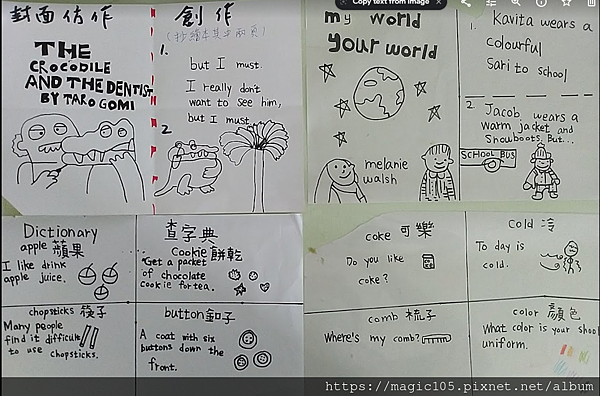 Copy text from image
封面仿作
THE
CROCODILE
AND THE DENTIST
BY TARO GOMI
創作
(抄繪本其中兩頁)
1.
but I must.
I really don't
want to see him,
but I must
2
my world
your world
melanie
walsh
1.
Kavita wears a
colourful
Sari to school
2
Jacob wears a
warm jacket and
snowboots. But...
SCHOOL BUS
Dictionary
apple 蘋果
I like drink
apple juice.
查字典
Cookie 餅乾
Get a packet
of chocolate
cookie for tea.
chopsticks 筷子
Many people
find it difficult
to use chopsticks.
button 釦子
A coat with six
buttons down the
front.
coke 可樂
Do you like
coke?
cold 冷
To day is
cold.
comb 梳子
Where's my comb?
color 顏色
What color is your shool
uniform.
https://magic105.pixnet.net/album